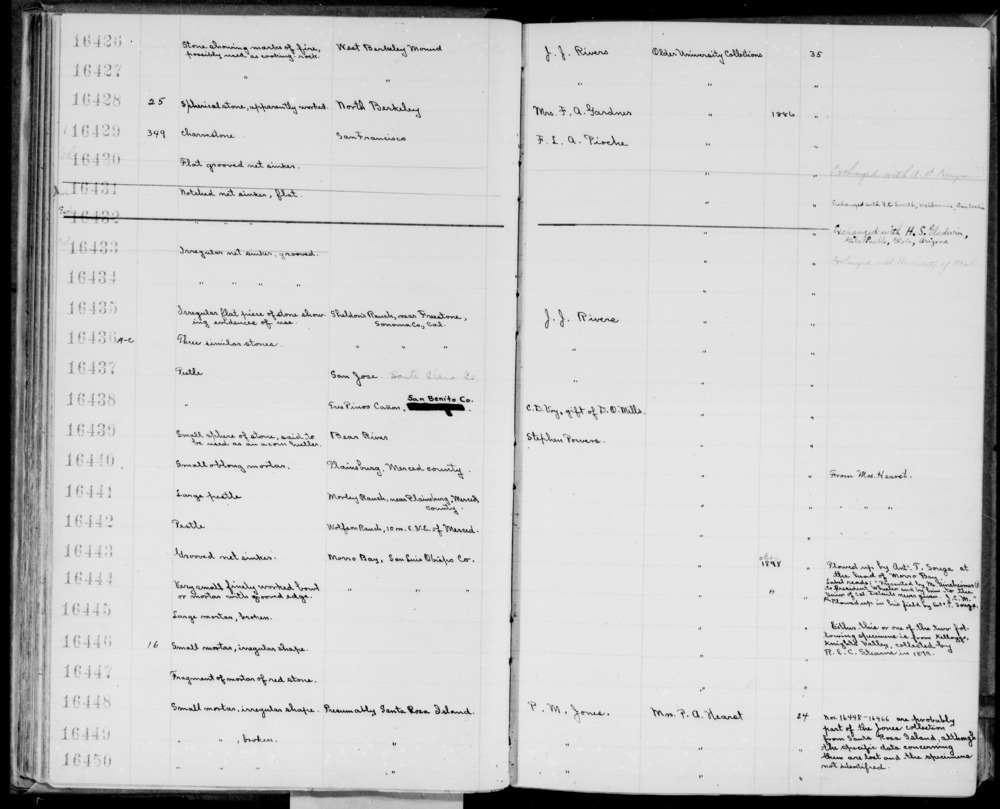 16426 Stone showing marks of fire, West Berkeley Mound J. J. Rivers Older University Collections 35
possibly used as cooking-rock.
16427 " " " " "
16428 25 Spherical stone, apparently worked. North Berkeley Mrs. F. A. Gardner " 1886 "
16429 349 Charmstone San Francisco F. L. A. Pioche " "
16430 Flat grooved net sinker. " " Exchanged with A. S.
16431 Notched net sinker, flat. " " Exchanged with Melbourne, Australia
16432 " " " " Exchanged with H. S. Gladwin,
Gila Pueblo, Globe, Arizona
16433 Irregular net sinker, grooved. " " Exchanged with University of
16434 " " " " " "
16435 Irregular flat piece of stone show- Sheldon's Ranch, near Freestone, J. J. Rivers " "
ing evidences of use. Sonoma Co, Cal.
16436 A-C Three similar stones. " " " " " "
16437 Pestle San Jose. Santa Clara Co. " " "
16438 " Tres Pinos Cañon, San Benito Co. C. D. Voy, gift of D. O. Mills. " "
16439 Small sphere of stone, said to Bear River Stephen Powers. " "
be used as an acorn huller.
16440 Small oblong mortar. Plainsburg, Merced county. " " From Mrs. Hearst.
16441 Large pestle Morley Ranch, near Plainsburg, Merced " " " " "
county.
16442 Pestle Wolfsen Ranch, 10 m. S.W. of Merced. " " "
16443 Grooved net sinker. Morro Bay, San Luis Obispo Co. " 1898 " Plowed up by Ant. T. Souza at
the head of Morro Bay.
16444 Very small finely worked bowl " " " " " " " Label reads: "Presented by
or mortar with grooved edge. to President Wheeler and by him to the
Univ of Cal. Details never given. J.C.M.
Plowed up in his field by Ant. T. Souza
16445 Large mortar, broken. " " Either this or one of the two fol-
lowing specimens is from Kellogg,
16446 16 Small mortar, irregular shape. " " Knight's Valley, collected by
R. E. C. Stearns in 1899.
16447 Fragment of mortar of red stone. " "
16448 Small mortar, irregular shape. Presumably Santa Rosa Island. P. M. Jones. Mrs. P. A. Hearst 24 Nos. 16448-16466 are probably
part of the Jones collection
16449 " " , broken. " " " " from Santa Rosa Island, although
the specific data concerning
16450 " " " " " " them are lost and the specimens
not identified.